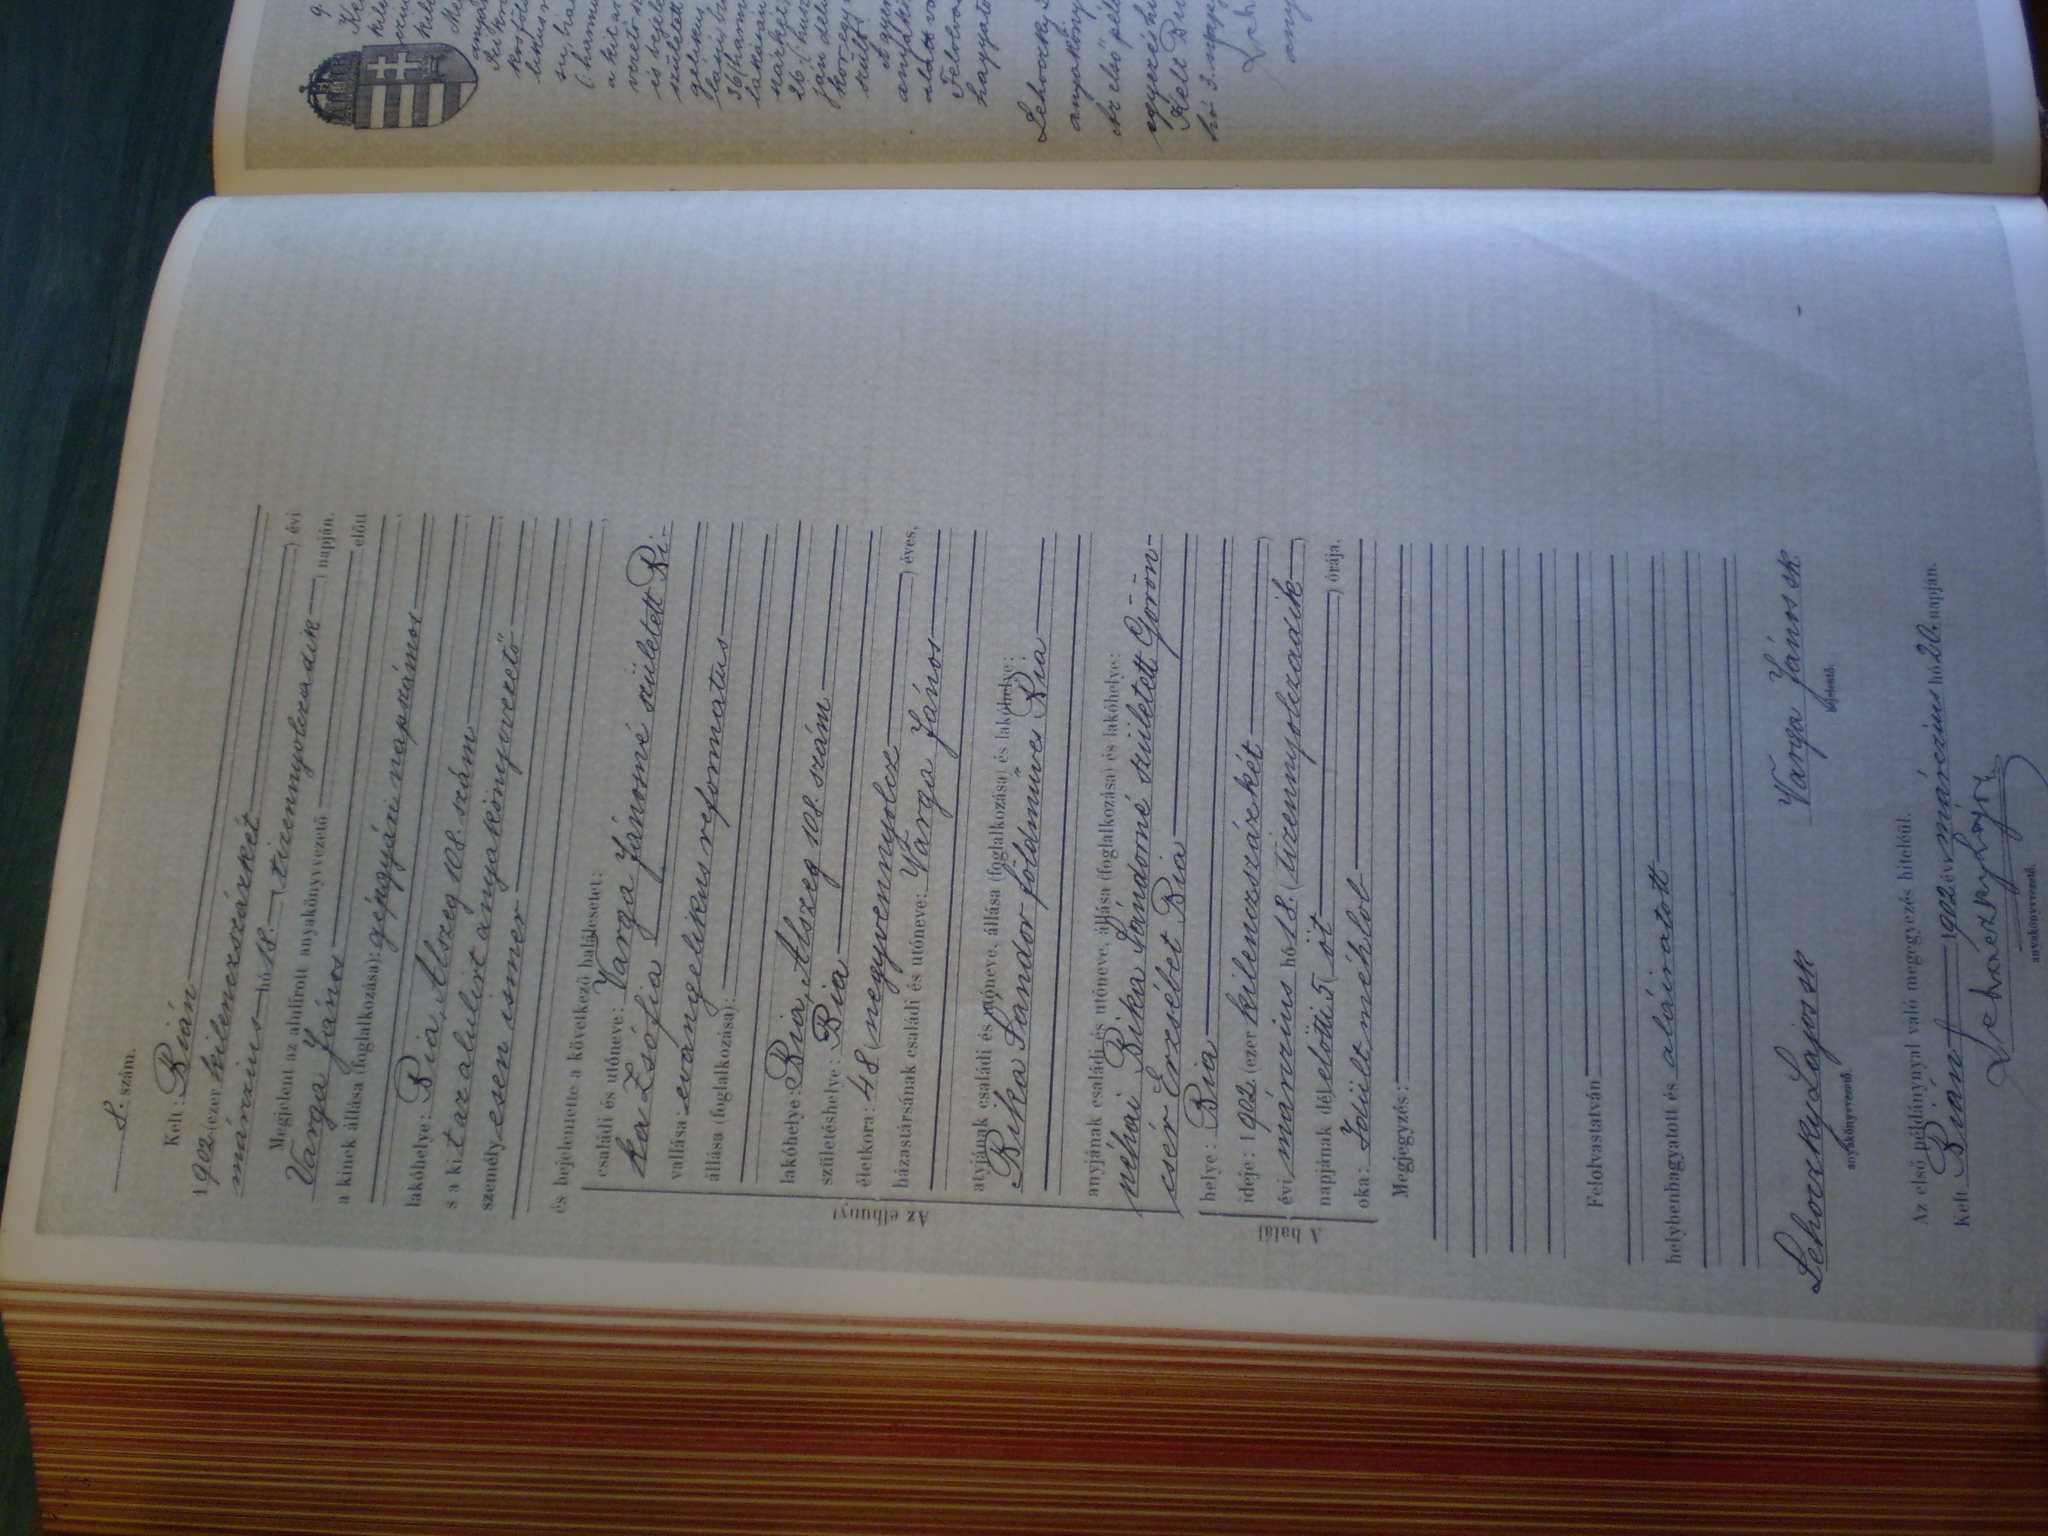 8. szám.
Kelt: Bián
1902 (ezer kilenczszázkét
márczius hó 18. (tizennyolczadik ) évi
Megjelent az alulirott anyakönyvvezető ) napján.
Varga János előtt
a kinek állása (foglalkozása): gépgyári napszámos
lakóhelye: Bia, Alszeg 108. szám
s a kit az alulirt anyakönyvvezető
személyesen ismer
és bejelentette a következő halálesetet:
családi és utóneve: Varga Jánosné született Bi-
ka Zsófia
vallása: evangelikus reformatus
állása (foglalkozása):
lakóhelye: Bia, Alszeg 108. szám
születéshelye: Bia
életkora: 48 (negyvennyolcz ) éves,
házastársának családi és utóneve: Varga János
atyjának családi és utóneve, állása (foglalkozása) és lakóhelye:
Bika Sándor földmüves Bia
anyjának családi és utóneve, állása (foglalkozása) és lakóhelye:
néhai Bika Sándorné született Görön-
csér Erzsébet Bia
Az elhunyt
helye: Bia
ideje: 1902. (ezer kilenczszázkét )
évi márczius hó 18. (tizennyolczadik )
napjának délelőtti 5 (öt ) órája,
oka: méhlob
A halál
Megjegyzés:
Felolvastatván
helybenhagyatott és aláiratott
Lehoczky Lajos sk Varga János sk
anyakönyvvezető. bejelentő.
Az első példánynyal való megegyezés hiteléül.
Kelt Bián 1902 évi márczius hó 20. napján.
anyakönyvvezető.
9.
Lehoczky
anyakönyv
Az első pél
egyezés hi
hó 3.